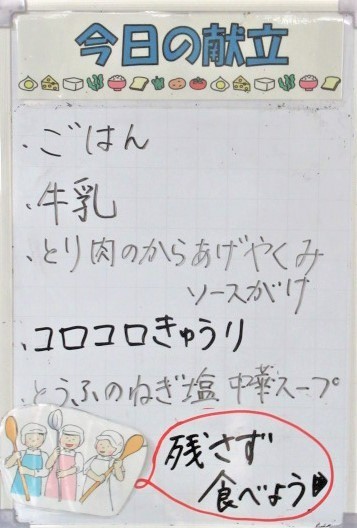 今日の献立
・ごはん
・牛乳
・とり肉のからあげやくみ
ソースがけ
・コロコロきゅうり
・とうふのねぎ塩中華スープ
残さず
食べよう